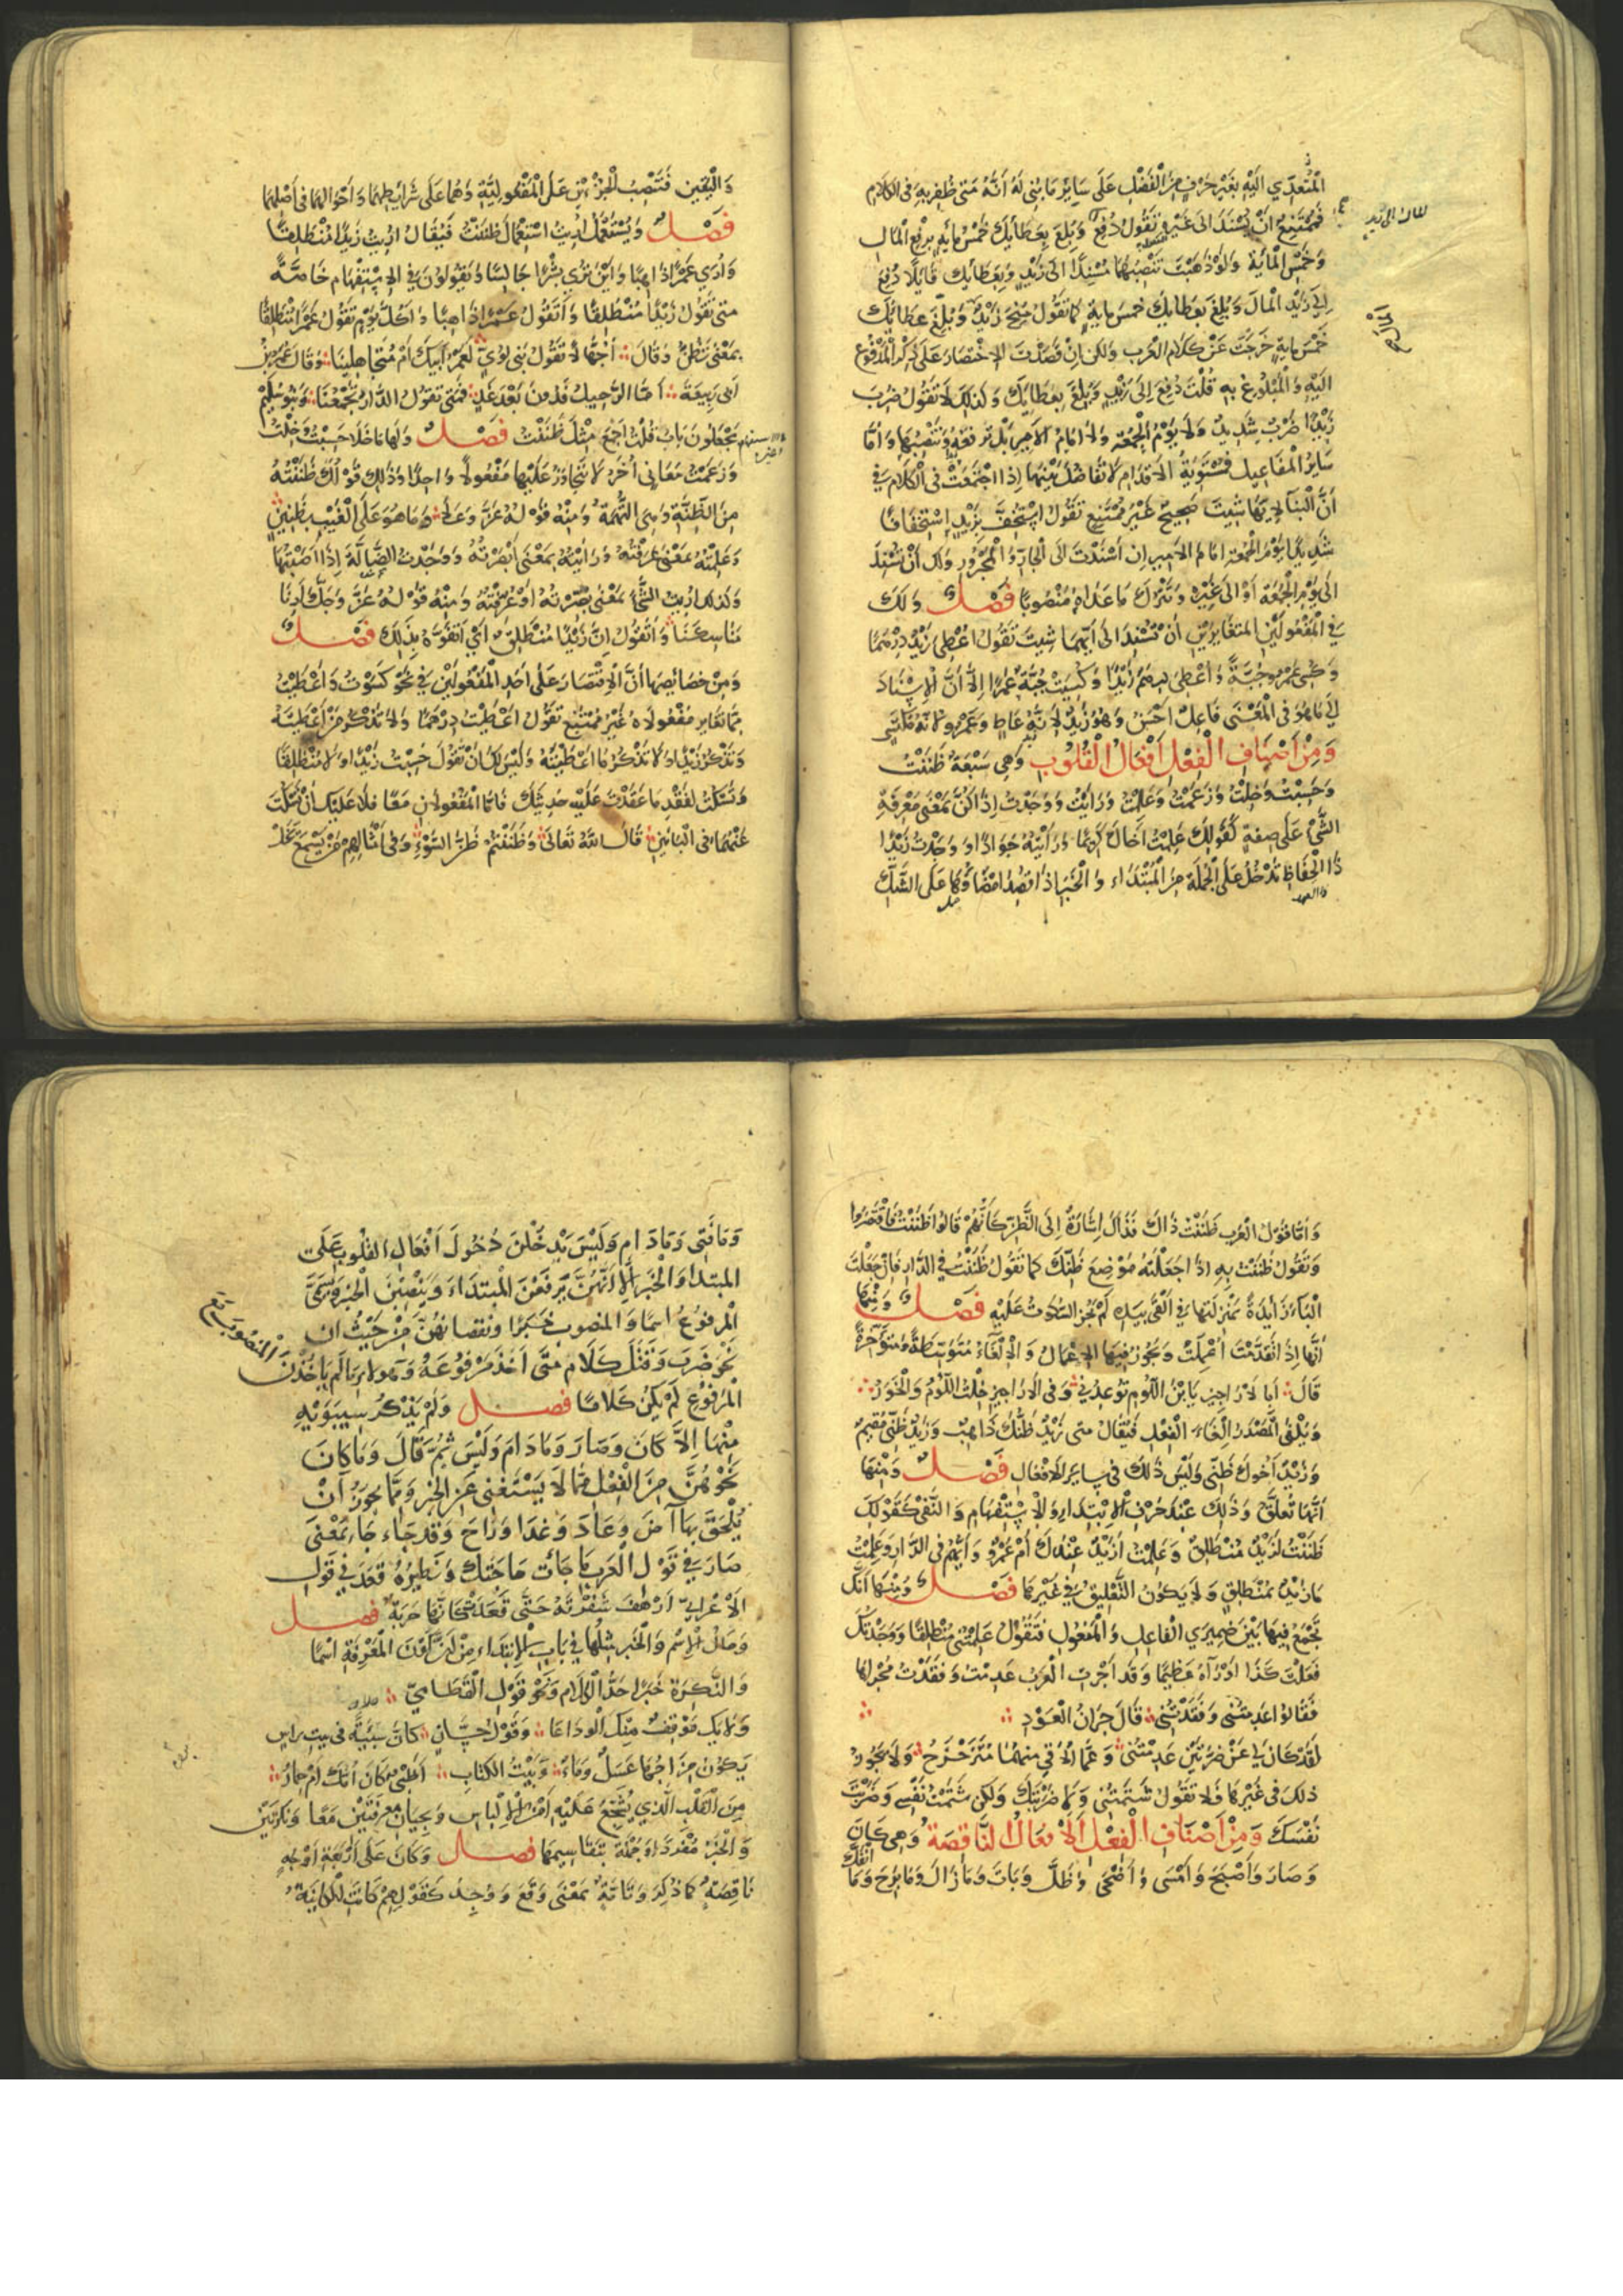 المُتَعَدِّي اليْهِ بغَيْر حَرْفٍ مِنَ الْفَضْلِ عَلَى سَايِرِ مَا بُنِيَ لَهُ أنَّهُ مَتَى ظُفِرَ بِهِ فى الكَلَامِ
فمُمْتَنِعٌ أنْ يُسْنَدَ الى غَيْرِهِ تَقُولُ دُفِعَ وَبُلِغَ بِعَطَائِكَ خَمْسُ مايةٍ برَفْعِ المَالِ
وَخَمْسِ المايةِ وَلَوْ ذَهَبْتَ تَنْصِبُهُمَا مُسْنِدًا الى زَيْدٍ وَبِعَطَائِكَ قَايلًا دُفِعَ
إلى زَيْدٍ المَالَ وَبُلِغَ بِعَطَائِكَ خَمْسَ مايةٍ كما تَقُولُ مُنِحَ زَيْدٌ وَبُلِّغَ عَطَائُكَ
خَمْسَ مايةٍ خَرَجْتَ عَنْ كَلَامِ العَرَبِ ولكن اِنْ قَصَدْتَ الاِخْتِصَارَ عَلَى ذِكْرِ المَدْفُوعِ
اليْهِ وَالْمَبْلُوغِ بِهِ قُلْتَ دُفِعَ إلى زَيْدٍ وَبُلِغَ بِعَطَائِكَ وَكَذلِكَ لَا تَقُولُ ضُرِبَ
زَيْدًا ضَرْبٌ شَدِيدٌ وَلَا يَوْمُ الجُمُعَةِ وَلَا أمَامُ الأمِيرِ بَلْ تَرْفَعُهُ وَتَنْصِبُهَا وَأمَّا
سَايِرُ المَفَاعِيلِ فمُسْتَوِيَةُ الأقْدَامِ لَا تَفَاضُلَ بَيْنَهَا إذا اجْتَمَعَتْ فى الْكَلَامِ فى
أنَّ الْبِنَاءَ لِأيِّهَا شِيتَ صَحِيحٌ غَيْرُ مُمْتَنِعٍ تَقُولُ اسْتُخِفَّ بِزَيْدٍ اسْتِخْفَافًا
شَدِيدًا يَوْمَ الجُمُعَةِ امَامَ الأمِيرِ اِن أسْنَدْتَ الى الجَارِّ وَالْمَجْرُورِ وَلَكَ أنْ تُسْنِدَ
الى يَوْمِ الْجُمُعَةِ أوْ الى غَيْرِهِ وَتَتْرُكَ مَا عَدَاهُ مَنْصُوبًا فَصْلٌ وَلَكَ
فى الْمَفْعُولَيْنِ الْمُتَغَايِرَيْنِ أنْ تُسْنِدَ الى أيِّهِمَا شِيتَ تَقُولُ أُعْطِيَ زَيْدٌ دِرْهَمًا
وَكُسِيَ عَمْرٌو جُبَّةً وَأُعْطِيَ دِرْهَمٌ زَيْدًا وَكُسِيَتْ جُبَّةٌ عَمْرًا إلَّا أنَّ الْاِسْنَادَ
الى مَا هُوَ فى الْمَعْنَى فَاعِلٌ احْسَنُ وَهُوَ زَيْدٌ لِأنَّهُ عَاطٍ وَعَمْرٌو لأنَّهُ مُكْتَسٍ
وَمِنْ أَصْنَافِ الْفِعْلِ أَفْعَالُ الْقُلُوبِ وَهِيَ سَبْعَةٌ ظَنَنْتُ
وَحَسِبْتُ وَخِلْتُ وَزَعَمْتُ وَعَلِمْتُ وَرَأيْتُ وَوَجَدْتُ إذَا كُنَّ بِمَعْنَى مَعْرِفَةِ
الشَّيْءِ عَلَى صِفَةٍ كَقَوْلِكَ عَلِمْتُ أخَاكَ كَرِيمًا وَرَأيْتُهُ جَوَادًا وَوَجَدْتُ زَيْدًا
ذَا الْحِفَاظِ تَدْخُلُ عَلَى الْجُمْلَةِ مِنَ الْمُبْتَدَاءِ وَالْخَبَرِ إذا قُصِدَ امْضَاؤُهَا عَلَى الشَّكِّ
وَالْيَقِينِ فَتَنْصِبُ الْجُزْءَيْنِ عَلَى الْمَفْعُولِيَّةِ وَهُمَا عَلَى شَرَائِطِهِمَا وَأحْوَالِهِمَا فى أصْلِهِمَا
فَصْلٌ وَيُسْتَعْمَلُ أُرِيتُ اسْتِعْمَالَ ظَنَنْتُ فَيُقَالُ أُرِيتُ زَيْدًا مُنْطَلِقًا
وَأُرَى عَمْرًا ذَاهِبًا وَأيْنَ تُرَى بِشْرًا جَالِسًا وَيَقُولُونَ فى الاِسْتِفْهَامِ خَاصَّةً
مَتى تَقُولُ زَيْدًا مُنْطَلِقًا وَأتَقُولُ عَمْرًا ذَاهِبًا وَأكُلَّ يَوْمٍ تَقُولُ عَمْرًا مُنْطَلِقًا
بِمَعْنَى تَظُنُّ وَقَالَ أجُهَّالًا تَقُولُ بَنِي لُؤَيٍّ لَعَمْرُ أبِيكَ أمْ مُتَجَاهِلِينَا وَقَالَ عُمَرُ بْنُ
أبى رَبِيعَةَ أمَّا الرَّحِيلُ فَدُونَ بَعْدَ غَدٍ فَمَتَى تَقُولُ الدَّارُ تَجْمَعُنَا وَبَنُو سُلَيْمٍ
يَجْعَلُونَ بَابَ قُلْتُ اجْمَعَ مِثْلَ ظَنَنْتُ فَصْلٌ وَلَهَا مَا خَلَا حَسِبْتُ وَخِلْتُ
وَزَعَمْتُ مَعَانِى أُخَرُ لَا تَتَجَاوَزُ عَلَيْهَا مَفْعُولًا وَاحِدًا وَذَلِكَ قَوْلُكَ ظَنَنْتُهُ
مِنَ الظِّنَّةِ وَهِىَ التُّهْمَةُ وَمِنْهُ قَوْلُهُ عَزَّ وَعَلَا وَمَا هُوَ عَلَى الْغَيْبِ بِظَنِينٍ
وَعَلِمْتُهُ بِمَعْنَى عَرَفْتُهُ وَرَأيْتُهُ بِمَعْنَى أبْصَرْتُهُ وَوَجَدْتُ الضَّالَّةَ إذَا أصَبْتَهَا
وَكَذلِكَ أُرِيتُ الشَّيْءَ بِمَعْنَى بُصِّرْتُهُ أوْ عُرِّفْتُهُ وَمِنْهُ قَوْلُهُ عَزَّ وَجَلَّ أرِنَا
مَنَاسِكَنَا وَأتَقُولُ إنَّ زَيْدًا مُنْطَلِقٌ أيْ أتَفُوهُ بِذلِكَ فَصْلٌ
وَمِنْ خَصَائِصِهَا أنَّ الاِقْتِصَارَ عَلَى أحَدِ الْمَفْعُولَيْنِ فى نَحْوِ كَسَوْتُ وَأعْطَيْتُ
مِمَّا تَغَايَرَ مَفْعُولَاهُ غَيْرُ مُمْتَنِعٍ تَقُولُ اعْطَيْتُ دِرْهَمًا وَلَا تَذْكُرُ مَنْ أعْطَيْتَهُ
وَتَذْكُرُ زَيْدًا وَلَا تَذْكُرُ مَا اعْطَيْتَهُ وَلَيْسَ لَكَ أنْ تَقُولَ حَسِبْتُ زَيْدًا وَلَا مُنْطَلِقًا
وَتَسْكُتَ لِفَقْدِ مَا عَقَدْتَ عَلَيْهِ حَدِيثَكَ فَامَّا الْمَفْعُولَانِ مَعًا فَلَا عَلَيْكَ أنْ تَسْكُتَ
عَنْهُمَا فى الْبَابَيْنِ قَالَ اللهُ تَعَالَى وَظَنَنْتُمْ ظَنَّ السَّوْءِ وَفى أمْثَالِهِمْ مَنْ يَسْمَعْ يَخَلْ
وَأمَّا قَوْلُ الْعَرَبِ ظَنَنْتُ ذَاكَ فَذَاكَ اِشَارَةٌ إلَى الظَّنِّ كَأنَّهُمْ قَالُوا ظَنَنْتُ فَاقْتَصَرُوا
وَتَقُولُ ظَنَنْتُ بِهِ إذَا جَعَلْتَهُ مَوْضِعَ ظَنِّكَ كما تَقُولُ ظَنَنْتُ فى الدَّارِ فَإنْ جَعَلْتَ
الْبَاءَ زَائِدَةً بِمَنْزِلَتِهَا فى ألْقَى بِيَدِهِ لَمْ يَجُزِ السُّكُوتُ عَلَيْهِ فَصْلٌ وَمِنْهَا
أنَّهَا إذَا تَقَدَّمَتْ أُعْمِلَتْ وَيَجُوزُ فِيهَا الاِعْمَالُ وَالْاِلْغَاءُ مُتَوَسِّطَةً وَمُتَأخِّرَةً
قَالَ أبِا لأرَاجِيزِ يَابْنَ اللُّومِ تُوعِدُنِي وَفى الأرَاجِيزِ خِلْتُ اللُّؤْمُ وَالْخَوَرُ
وَيُلْغَى الْمَصْدَرُ اِلْغَاءَ الْفِعْلِ فَيُقَالُ مَتى زَيْدٌ ظَنُّكَ ذَاهِبٌ وَزَيْدٌ ظَنِّى مُقِيمٌ
وَزَيْدٌ أخُوكَ ظَنِّى وَلَيْسَ ذَلِكَ فى سَايِرِ الأفْعَالِ فَصْلٌ وَمِنْهَا
أنَّهَا تُعَلَّقُ وَذَلِكَ عِنْدَ حَرْفِ الْاِبْتِدَاءِ وَالْاِسْتِفْهَامِ وَالنَّفْىِ كَقَوْلِكَ
ظَنَنْتُ لَزَيْدٌ مُنْطَلِقٌ وَعَلِمْتُ أزَيْدٌ عِنْدَكَ أمْ عَمْرٌو وَأيُّهُمْ فى الدَّارِ وَعَلِمْتُ
مَا زَيْدٌ بِمُنْطَلِقٍ وَلَا يَكُونُ التَّعْلِيقُ فى غَيْرِهَا فَصْلٌ وَمِنْهَا أنَّكَ
تَجْمَعُ فِيهَا بَيْنَ ضَمِيرَيِ الْفَاعِلِ وَالْمَفْعُولِ فَتَقُولُ عَلِمْتُنِي مُنْطَلِقًا وَوَجَدْتُكَ
فَعَلْتَ كَذَا وَرَآهُ عَظِيمًا وَقَدْ أجْرَتِ الْعَرَبُ عَدِمْتُ وَفَقَدْتُ مُجْرَاهَا
فَقَالُوا عَدِمْتُنِى وَفَقَدْتُنِى قَالَ جِرَانُ الْعَوْدِ
لَقَدْ كَانَ لِى عَنْ ضَرَّتَيْنِ عَدِمْتُنِى وَعَمَّا أُلَاقِى مِنْهُمَا مُتَزَحْزَحُ وَلَا يَجُوزُ
ذَلِكَ فى غَيْرِهَا فَلَا تَقُولُ شَتَمْتُنِى وَلَا ضَرَبْتَكَ وَلكِن شَتَمْتُ نَفْسِى وَضَرَبْتَ
نَفْسَكَ وَمِنْ أَصْنَافِ الْفِعْلِ الْأَفْعَالُ النَّاقِصَةُ وَهِىَ كَانَ
وَصَارَ وَأصْبَحَ وَأمْسَى وَأضْحَى وَظَلَّ وَبَاتَ وَمَا زَالَ وَمَا بَرِحَ وَمَا انْفَكَّ
وَمَا فَتِئَ وَمَا دَامَ وَلَيْسَ يَدْخُلْنَ دُخُولَ أفْعَالِ الْقُلُوبِ عَلَى
المبتداءِ وَالْخَبَرِ إلَّا أنَّهُنَّ يَرْفَعْنَ الْمُبْتَدَاءَ وَيَنْصِبْنَ الْخَبَرَ وَيُسَمَّى
الْمَرْفُوعُ اسْمًا وَالمنصوبُ خَبَرًا وَنُقْصَانُهُنَّ مِنْ حَيْثُ ان
نَحْوَ ضَرَبَ وَقَتَلَ كَلَامٌ مَتَى أخَذَ مَرْفُوعَهُ وَهؤلاءِ مَا لَمْ يَأخُذْنَ الْمَنْصُوبَ مَعَ
الْمَرْفُوعِ لَمْ يَكُنْ كَلَامًا فصل وَلَمْ يَذْكُرْ سِيبَوَيْهِ
مِنْهَا اِلَّا كَانَ وَصَارَ وَمَا دَامَ وَلَيْسَ ثُمَّ قَالَ وَمَا كَانَ
نَحْوَهُنَّ مِنَ الْفِعْلِ مِمَّا لَا يَسْتَغْنِى عَنِ الْخَبَرِ وَمِمَّا يَجُوزُ أنْ
يُلْحَقَ بِهَا آضَ وَعَادَ وَغَدَا وَرَاحَ وَقَدْ جَاءَ جَاءَ بِمَعْنَى
صَارَ فى قَوْلِ الْعَرَبِ مَا جَاءَتْ حَاجَتُكَ وَنَظِيرُهُ قَعَدَ فى قَوْلِ
الأعْرَابِيِّ أرْهَفَ شَفْرَتَهُ حَتَّى قَعَدَتْ كَأنَّهَا حَرْبَةٌ فصل
وَحَالُ الاِسْمِ وَالْخَبَرِ مِثْلُهَا فى بَابِ الْاِبْتِدَاءِ مِنْ أنَّ كَوْنَ الْمَعْرِفَةِ اسْمًا
وَالنَّكِرَةِ خَبَرًا حَدُّ الْكَلَامِ وَنَحْوُ قَوْلِ الْقَطَامِيِّ
وَلَا يَكُ مَوْقِفٌ مِنْكِ الْوَدَاعَا وَقَوْلِ حَسَّانَ كَأنَّ سَبِيئَةً مِنْ بَيْتِ رَاسٍ
يَكُونُ مِزَاجُهَا عَسَلٌ وَمَاءٌ وَبَيْتِ الْكِتَابِ أظَبْىٌ كَانَ أُمَّكَ أمْ حِمَارُ
مِنَ الْقَلْبِ الَّذِي يُشَجِّعُ عَلَيْهِ أمْنُ الْاِلْبَاسِ وَيَجِيئَانِ مَعْرِفَتَيْنِ مَعًا وَنَكِرَتَيْنِ
وَالْخَبَرُ مُفْرَدًا وَجُمْلَةً بِتَقَاسِيمِهَا فصل وَكَانَ عَلَى أرْبَعَةِ أوْجُهٍ
نَاقِصَةٌ كَمَا ذُكِرَ وَتَامَّةٌ بِمَعْنَى وَقَعَ وَوُجِدَ كَقَوْلِهِمْ كَانَتِ الْكَائِنَةُ